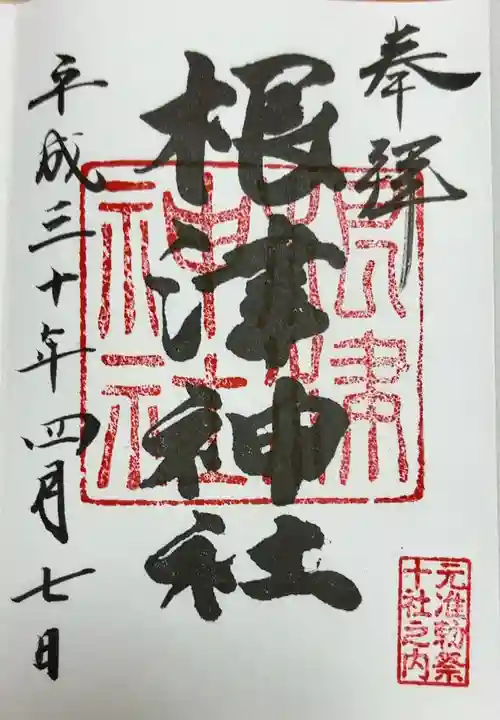 奉拝
根津神社
根津神社
元准勅祭
十社之内
平成三十年四月七日